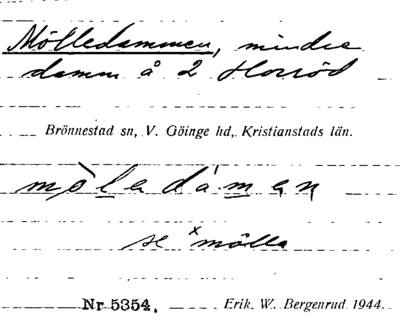 Mölledammen, mindre
damm å 2 Horröd
Brönnestad sn, V. Göinge hd, Kristianstads län.
mòledáman
se ˣmölla
Nr 5354. Erik W. Bergenrud 1944.